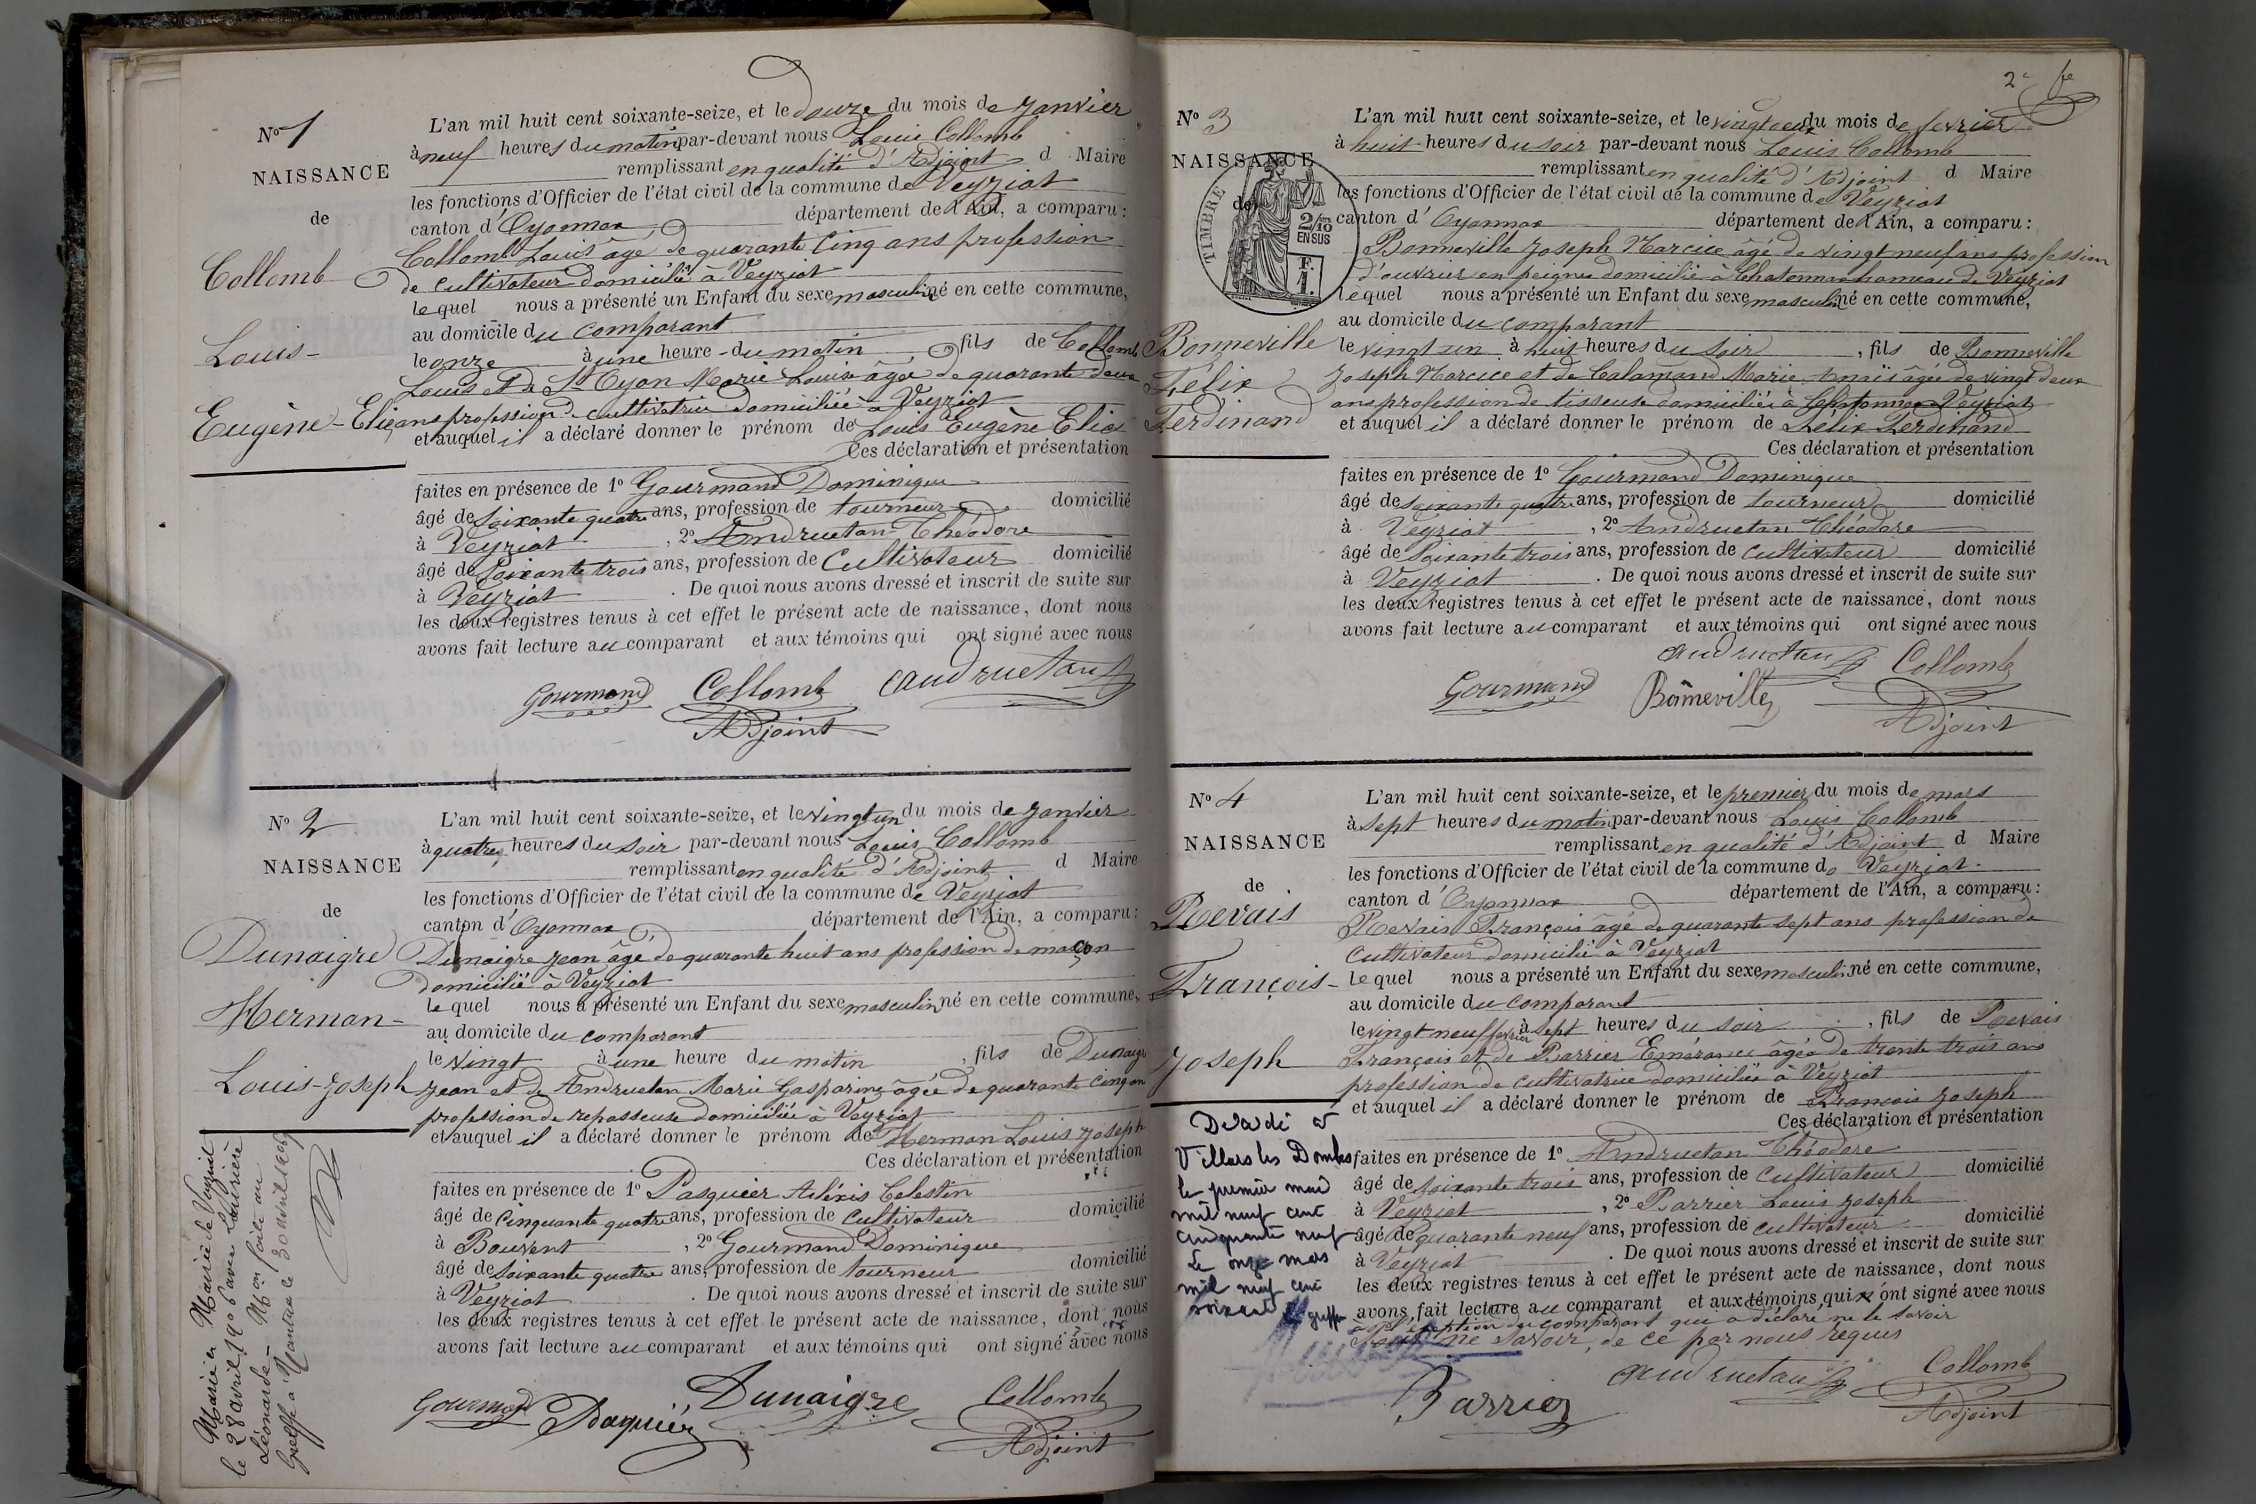 No 1
NAISSANCE
de
Collomb
Louis-
Eugène-Elie
L'an mil huit cent soixante-seize, et le douze du mois de Janvier
à neuf heures du matin par-devant nous Louis Collomb
remplissant en qualité d'Adjoint d Maire
les fonctions d'Officier de l'état civil de la commune de Veyziat
canton d'Oyonnax département de l'Ain, a comparu:
Collomb Louis âgé de quarante cinq ans profession
de cultivateur domicilié à Veyziat
lequel nous a présenté un Enfant du sexe masculin né en cette commune,
au domicile du comparant
le onze à une heure du matin, fils de Collomb
Louis et de St Oyon Marie Louise âgée de quarante deux
ans profession de cultivatrice domiciliée à Veyziat
et auquel il a déclaré donner le prénom de Louis Eugène Elie
Ces déclaration et présentation
faites en présence de 1o Gourmand Dominique
âgé de soixante quatre ans, profession de tourneur domicilié
à Veyziat, 2o Andruetan Théodore
âgé de soixante trois ans, profession de cultivateur domicilié
à Veyziat. De quoi nous avons dressé et inscrit de suite sur
les deux registres tenus à cet effet le présent acte de naissance, dont nous
avons fait lecture au comparant et aux témoins qui ont signé avec nous
Gourmand Collomb andruetan
Adjoint
No 2
NAISSANCE
de
Dunaigre
Herman-
Louis-Joseph
L'an mil huit cent soixante-seize, et le vingt un du mois de Janvier
à quatre heures du soir par-devant nous Louis Collomb
remplissant en qualité d'Adjoint d Maire
les fonctions d'Officier de l'état civil de la commune de Veyziat
canton d'Oyonnax département de l'Ain, a comparu:
Dunaigre Jean âgé de quarante huit ans profession de maçon
domicilié à Veyziat
lequel nous a présenté un Enfant du sexe masculin né en cette commune,
au domicile du comparant
le vingt à une heure du matin, fils de Dunaigre
Jean et de Andruetan Marie Gasparine âgée de quarante cinq ans
profession de repasseuse domiciliée à Veyziat
et auquel il a déclaré donner le prénom de Herman Louis Joseph
Ces déclaration et présentation
faites en présence de 1o Pasquier Aléxis Celestin
âgé de cinquante quatre ans, profession de cultivateur domicilié
à Bouvent, 2o Gourmand Dominique
âgé de soixante quatre ans, profession de tourneur domicilié
à Veyziat. De quoi nous avons dressé et inscrit de suite sur
les deux registres tenus à cet effet le présent acte de naissance, dont nous
avons fait lecture au comparant et aux témoins qui ont signé avec nous
Gourmand Pasquier Dunaigre Collomb
Adjoint
Marié à Mairie de
le 28 avril 190 avec
Léonarde - Mon faite au
Greffe à Nantua le 30 avril
2e fe
No 3
NAISSANCE
de
TIMBRE
2/10 EN SUS
F.
1.
Bonneville
Félix
Ferdinand
L'an mil huit cent soixante-seize, et le vingt deux du mois de fevrier
à huit heures du soir par-devant nous Louis Collomb
remplissant en qualité d'Adjoint d Maire
les fonctions d'Officier de l'état civil de la commune de Veyziat
canton d'Oyonnax département de l'Ain, a comparu:
Bonneville Joseph Narcice âgé de vingt neuf ans profession
d'ouvrier en peignes domicilié à Chatonnax hameau de Veyziat
lequel nous a présenté un Enfant du sexe masculin né en cette commune,
au domicile du comparant
le vingt un à huit heures du soir, fils de Bonneville
Joseph Narcice et de Calamand Marie Anaïs âgée de vingt deux
ans profession de tisseuse domiciliée à Chatonnax Veyziat
et auquel il a déclaré donner le prénom de Félix Ferdinand
Ces déclaration et présentation
faites en présence de 1o Gourmand Dominique
âgé de soixante quatre ans, profession de tourneur domicilié
à Veyziat, 2o Andruetan Théodore
âgé de soixante trois ans, profession de cultivateur domicilié
à Veyziat. De quoi nous avons dressé et inscrit de suite sur
les deux registres tenus à cet effet le présent acte de naissance, dont nous
avons fait lecture au comparant et aux témoins qui ont signé avec nous
Gourmand Bonneville andruetan Collomb
Adjoint
No 4
NAISSANCE
de
Revais
François-
Joseph
L'an mil huit cent soixante-seize, et le premier du mois de mars
à sept heures du matin par-devant nous Louis Collomb
remplissant en qualité d'Adjoint d Maire
les fonctions d'Officier de l'état civil de la commune de Veyziat.
canton d'Oyonnax département de l'Ain, a comparu:
Revais François âgé de quarante sept ans profession de
cultivateur domicilié à Veyziat
lequel nous a présenté un Enfant du sexe masculin né en cette commune,
au domicile du comparant
le vingt neuf fevrier à sept heures du soir, fils de Revais
François et de Barrier Emérance âgée de trente trois ans
profession de cultivatrice domiciliée à Veyziat
et auquel il a déclaré donner le prénom de François Joseph
Ces déclaration et présentation
faites en présence de 1o Andruetan Théodore
âgé de soixante trois ans, profession de cultivateur domicilié
à Veyziat, 2o Barrier Louis Joseph
âgé de quarante neuf ans, profession de cultivateur domicilié
à Veyziat. De quoi nous avons dressé et inscrit de suite sur
les deux registres tenus à cet effet le présent acte de naissance, dont nous
avons fait lecture au comparant et aux témoins qui ont signé avec nous
à l'éxception du comparant qui a déclaré ne le savoir
ne savoir, de ce par nous requis
Barrier andruetan Collomb
Adjoint
Décédé à
Villars les Dombes
le premier
mil neuf cent
cinquante neuf
Le onze mars
mil neuf cent
soixante greffier